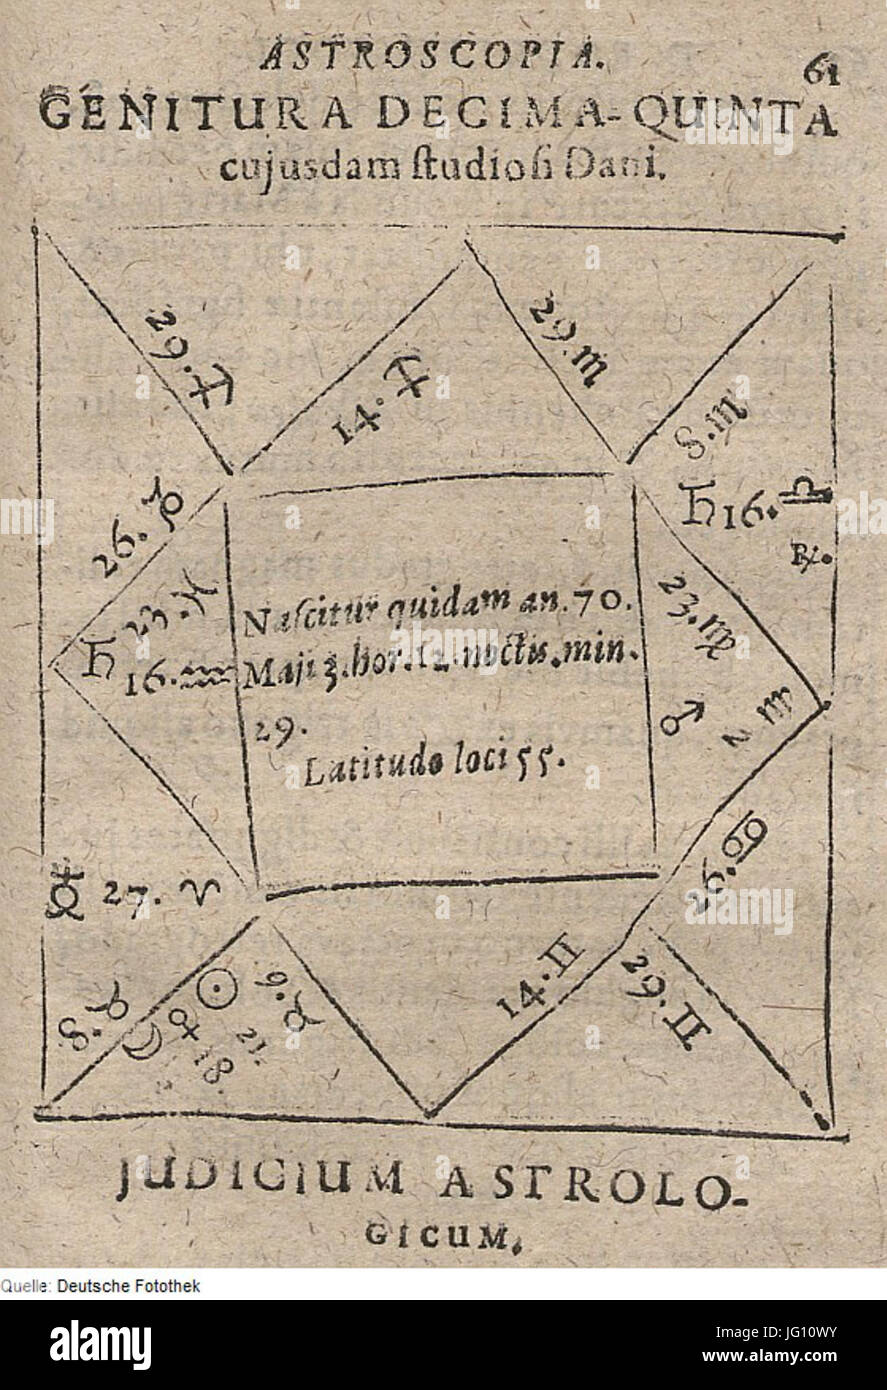 ASTROSCOPIA.
61
GENITURA DECIMA-QUINTA
cujusdam ſtudioſi Dani.
29. ♐
14. ♐
29. ♏
8. ♏
26. ♑
♄ 16. ♎
℞.
23. ♓
♄ 16. ♒
23. ♍
♂ 2 ♍
Naſcitur quidam an. 70.
Maji 3. hor. 12. noctis. min.
29.
Latitudo loci 55.
☿ 27. ♈
26. ♋
8. ♉
☉ 21.
☽ ♀ 18.
9. ♉
14. ♊
29. ♊
JUDICIUM ASTROLO-
GICUM.
Quelle: Deutsche Fotothek
alamy
Image ID: JG10WY
www.alamy.com